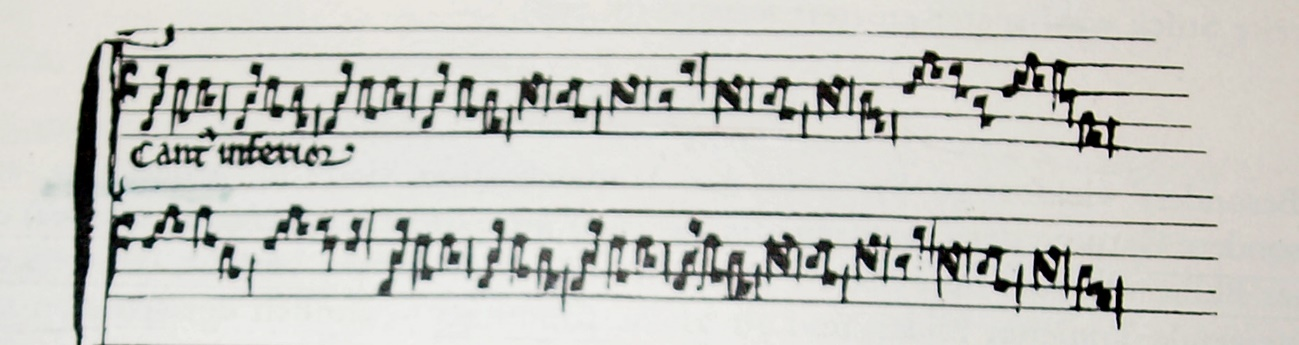 Cant᾽ inferior